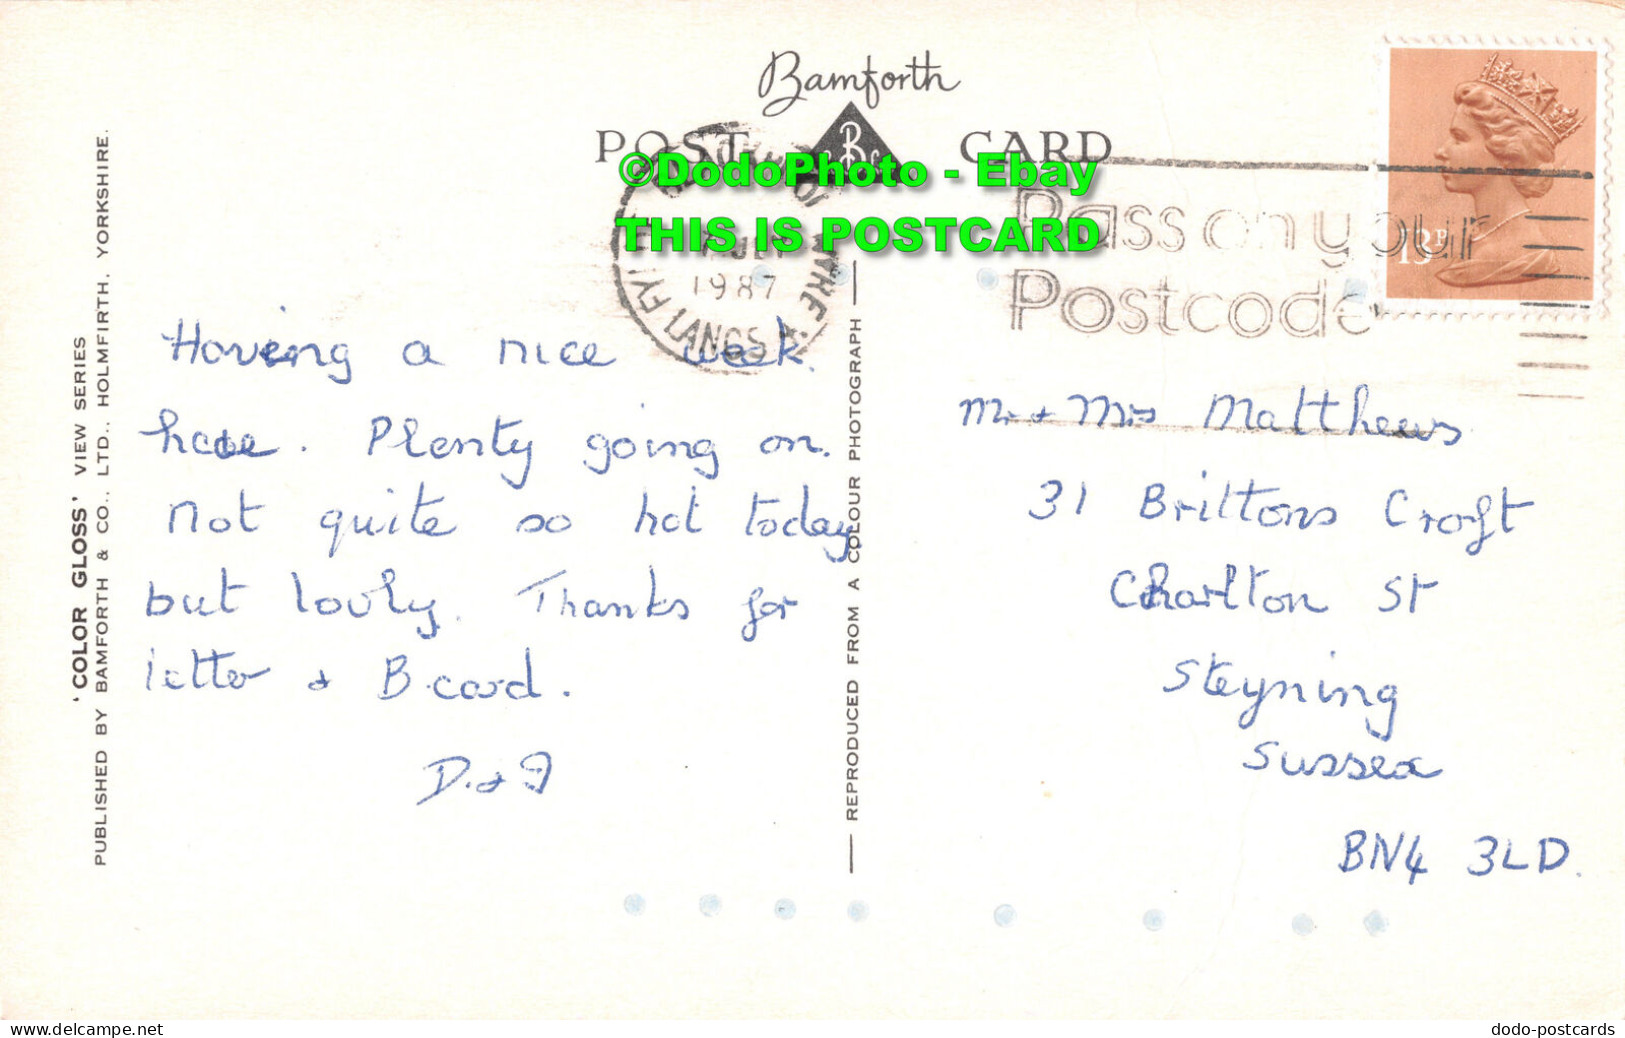 Bamforth
POST CARD
©DodoPhoto - Ebay
THIS IS POSTCARD
Pass on your
Postcode
13P
JLY
1987
LANCS
FYLDE
WYRE
'COLOR GLOSS' VIEW SERIES
PUBLISHED BY BAMFORTH & CO., LTD., HOLMFIRTH, YORKSHIRE.
Having a nice week
here. Plenty going on.
Not quite so hot today
but lovly. Thanks for
letter & B.card.
D. & J
REPRODUCED FROM A COLOUR PHOTOGRAPH
Mr & Mrs Matthews
31 Brittons Croft
Charlton St
Steyning
Sussex
BN4 3LD.
www.delcampe.net
dodo-postcards